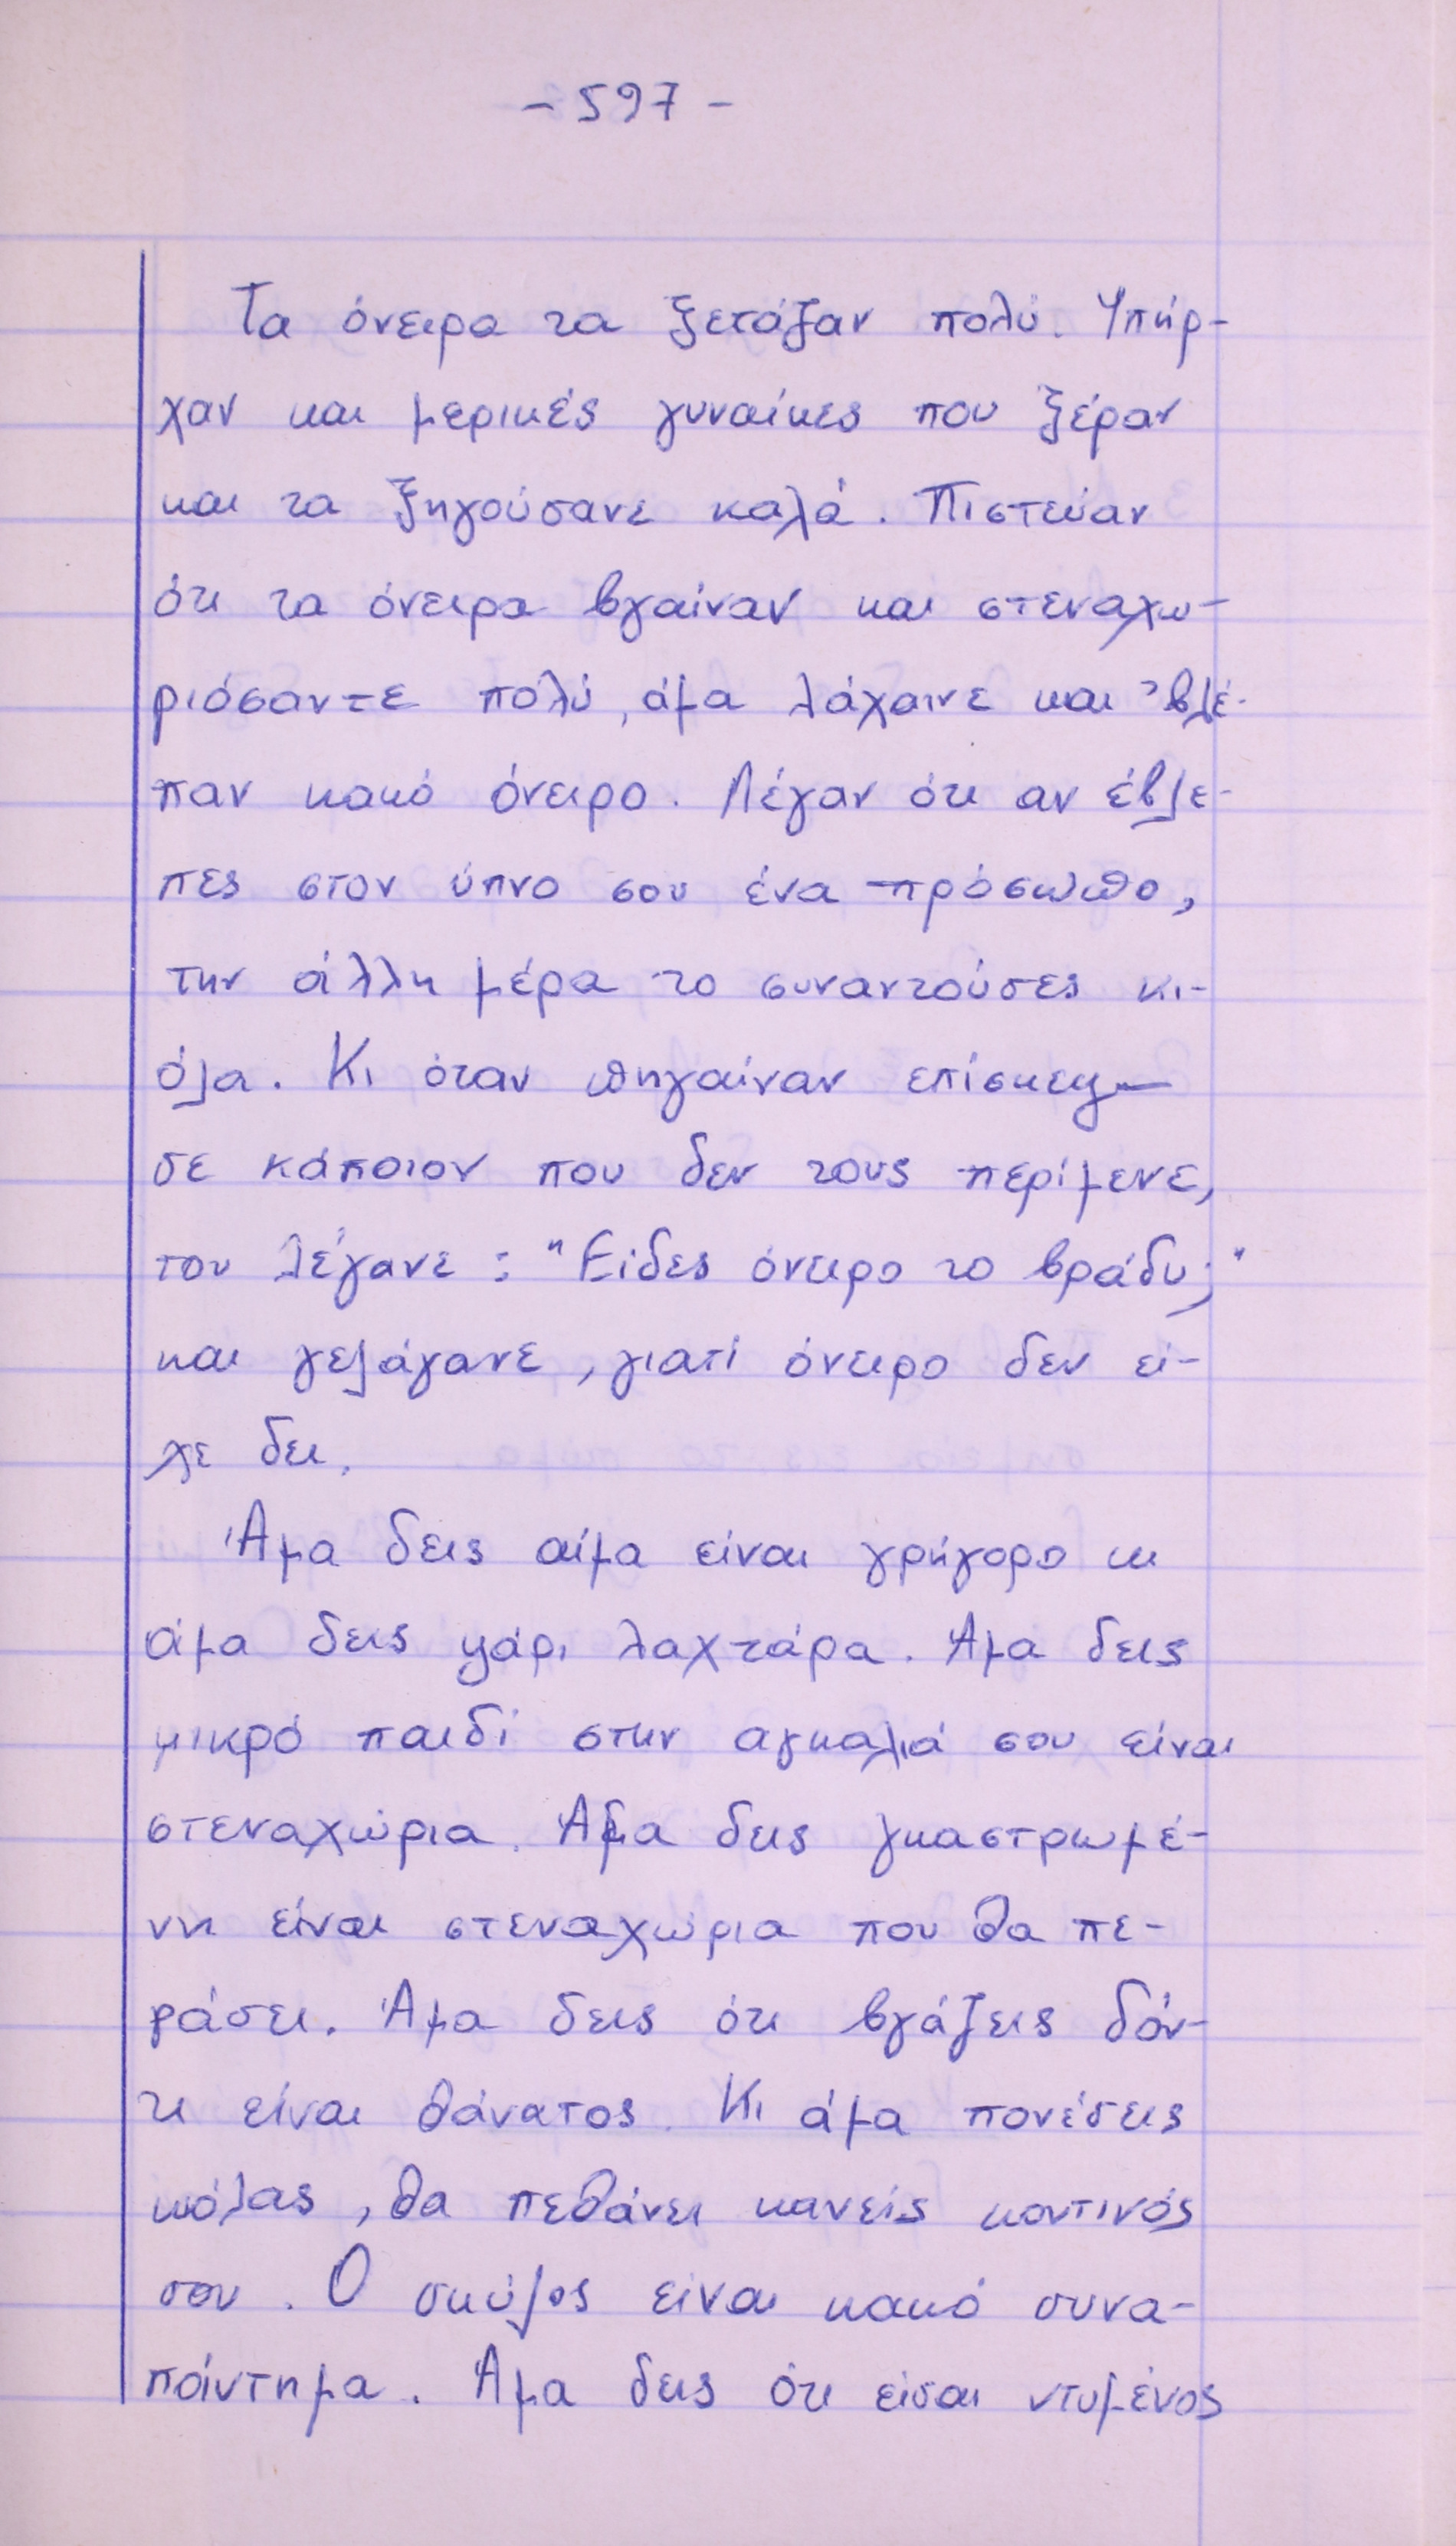 - 597 -
Τα όνειρα τα ξετάζαν πολύ. Υπήρ-
χαν και μερικές γυναίκες που ξέραν
και τα ξηγούσανε καλά. Πιστεύαν
ότι τα όνειρα βγαίναν και στεναχω-
ριόσαντε πολύ, άμα λάχαινε και 'βλέ-
παν κακό όνειρο. Λέγαν ότι αν έβλε-
πες στον ύπνο σου ένα πρόσωπο,
την άλλη μέρα το συναντούσες κι-
όλα. Κι όταν πηγαίναν επίσκεψη
σε κάποιον που δεν τους περίμενε,
του λέγανε: "Είδες όνειρο το βράδυ;"
και γελάγανε, γιατί όνειρο δεν εί-
χε δει.
Άμα δεις αίμα είναι γρήγορο κι
άμα δεις ψάρι λαχτάρα. Άμα δεις
μικρό παιδί στην αγκαλιά σου είναι
στεναχώρια. Άμα δεις γκαστρωμέ-
νη είναι στεναχώρια που θα πε-
ράσει. Άμα δεις ότι βγάζεις δόν-
τι είναι θάνατος. Κι άμα πονέσεις
κιόλας, θα πεθάνει κανείς κοντινός
σου. Ο σκύλος είναι κακό συνα-
πάντημα. Άμα δεις ότι είσαι ντυμένος